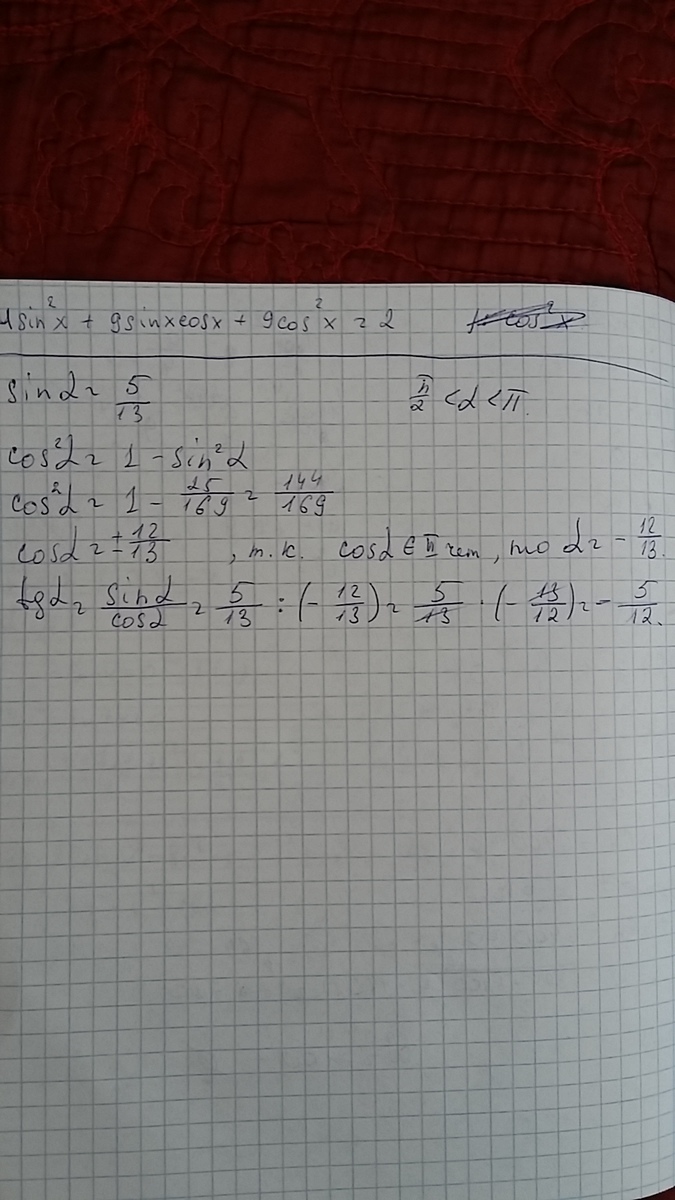 4sin²x + 9sinxcosx + 9cos²x = 2
sinα = 5/13      π/2 < α < π.
cos²α = 1 - sin²α
cos²α = 1 - 25/169 = 144/169
cosα = ± 12/13 , т.к. cosα ∈ II чет, то α = - 12/13.
tgα = sinα/cosα = 5/13 : (- 12/13) = 5/13 · (- 13/12) = - 5/12.